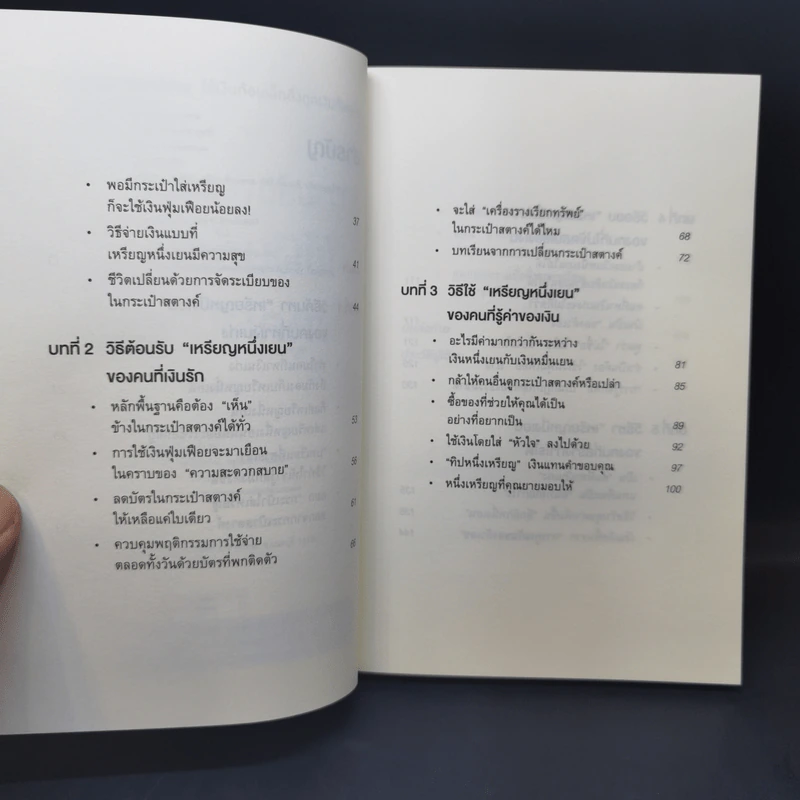 • พอมีกระเป๋าใส่เหรียญ
ก็จะใช้เงินฟุ่มเฟือยน้อยลง! 37
• วิธีจ่ายเงินแบบที่
เหรียญหนึ่งเยนมีความสุข 41
• ชีวิตเปลี่ยนด้วยการจัดระเบียบของ
ในกระเป๋าสตางค์ 44
บทที่ 2 วิธีต้อนรับ “เหรียญหนึ่งเยน”
ของคนที่เงินรัก
• หลักพื้นฐานคือต้อง “เห็น”
ข้างในกระเป๋าสตางค์ได้ทั่ว 53
• การใช้เงินฟุ่มเฟือยจะมาเยือน
ในคราบของ “ความสะดวกสบาย” 56
• ลดบัตรในกระเป๋าสตางค์
ให้เหลือแค่ใบเดียว 61
• ควบคุมพฤติกรรมการใช้จ่าย
ตลอดทั้งวันด้วยบัตรที่พกติดตัว 66
• จะใส่ “เครื่องรางเรียกทรัพย์”
ในกระเป๋าสตางค์ได้ไหม 68
• บทเรียนจากการเปลี่ยนกระเป๋าสตางค์ 72
บทที่ 3 วิธีใช้ “เหรียญหนึ่งเยน”
ของคนที่รู้ค่าของเงิน
• อะไรมีค่ามากกว่ากันระหว่าง
เงินหนึ่งเยนกับเงินหมื่นเยน 81
• กล้าให้คนอื่นดูกระเป๋าสตางค์หรือเปล่า 85
• ซื้อของที่ช่วยให้คุณได้เป็น
อย่างที่อยากเป็น 89
• ใช้เงินโดยใส่ “หัวใจ” ลงไปด้วย 92
• “ทิปหนึ่งเหรียญ” เงินแทนคำขอบคุณ 97
• หนึ่งเหรียญที่คุณยายมอบให้ 100